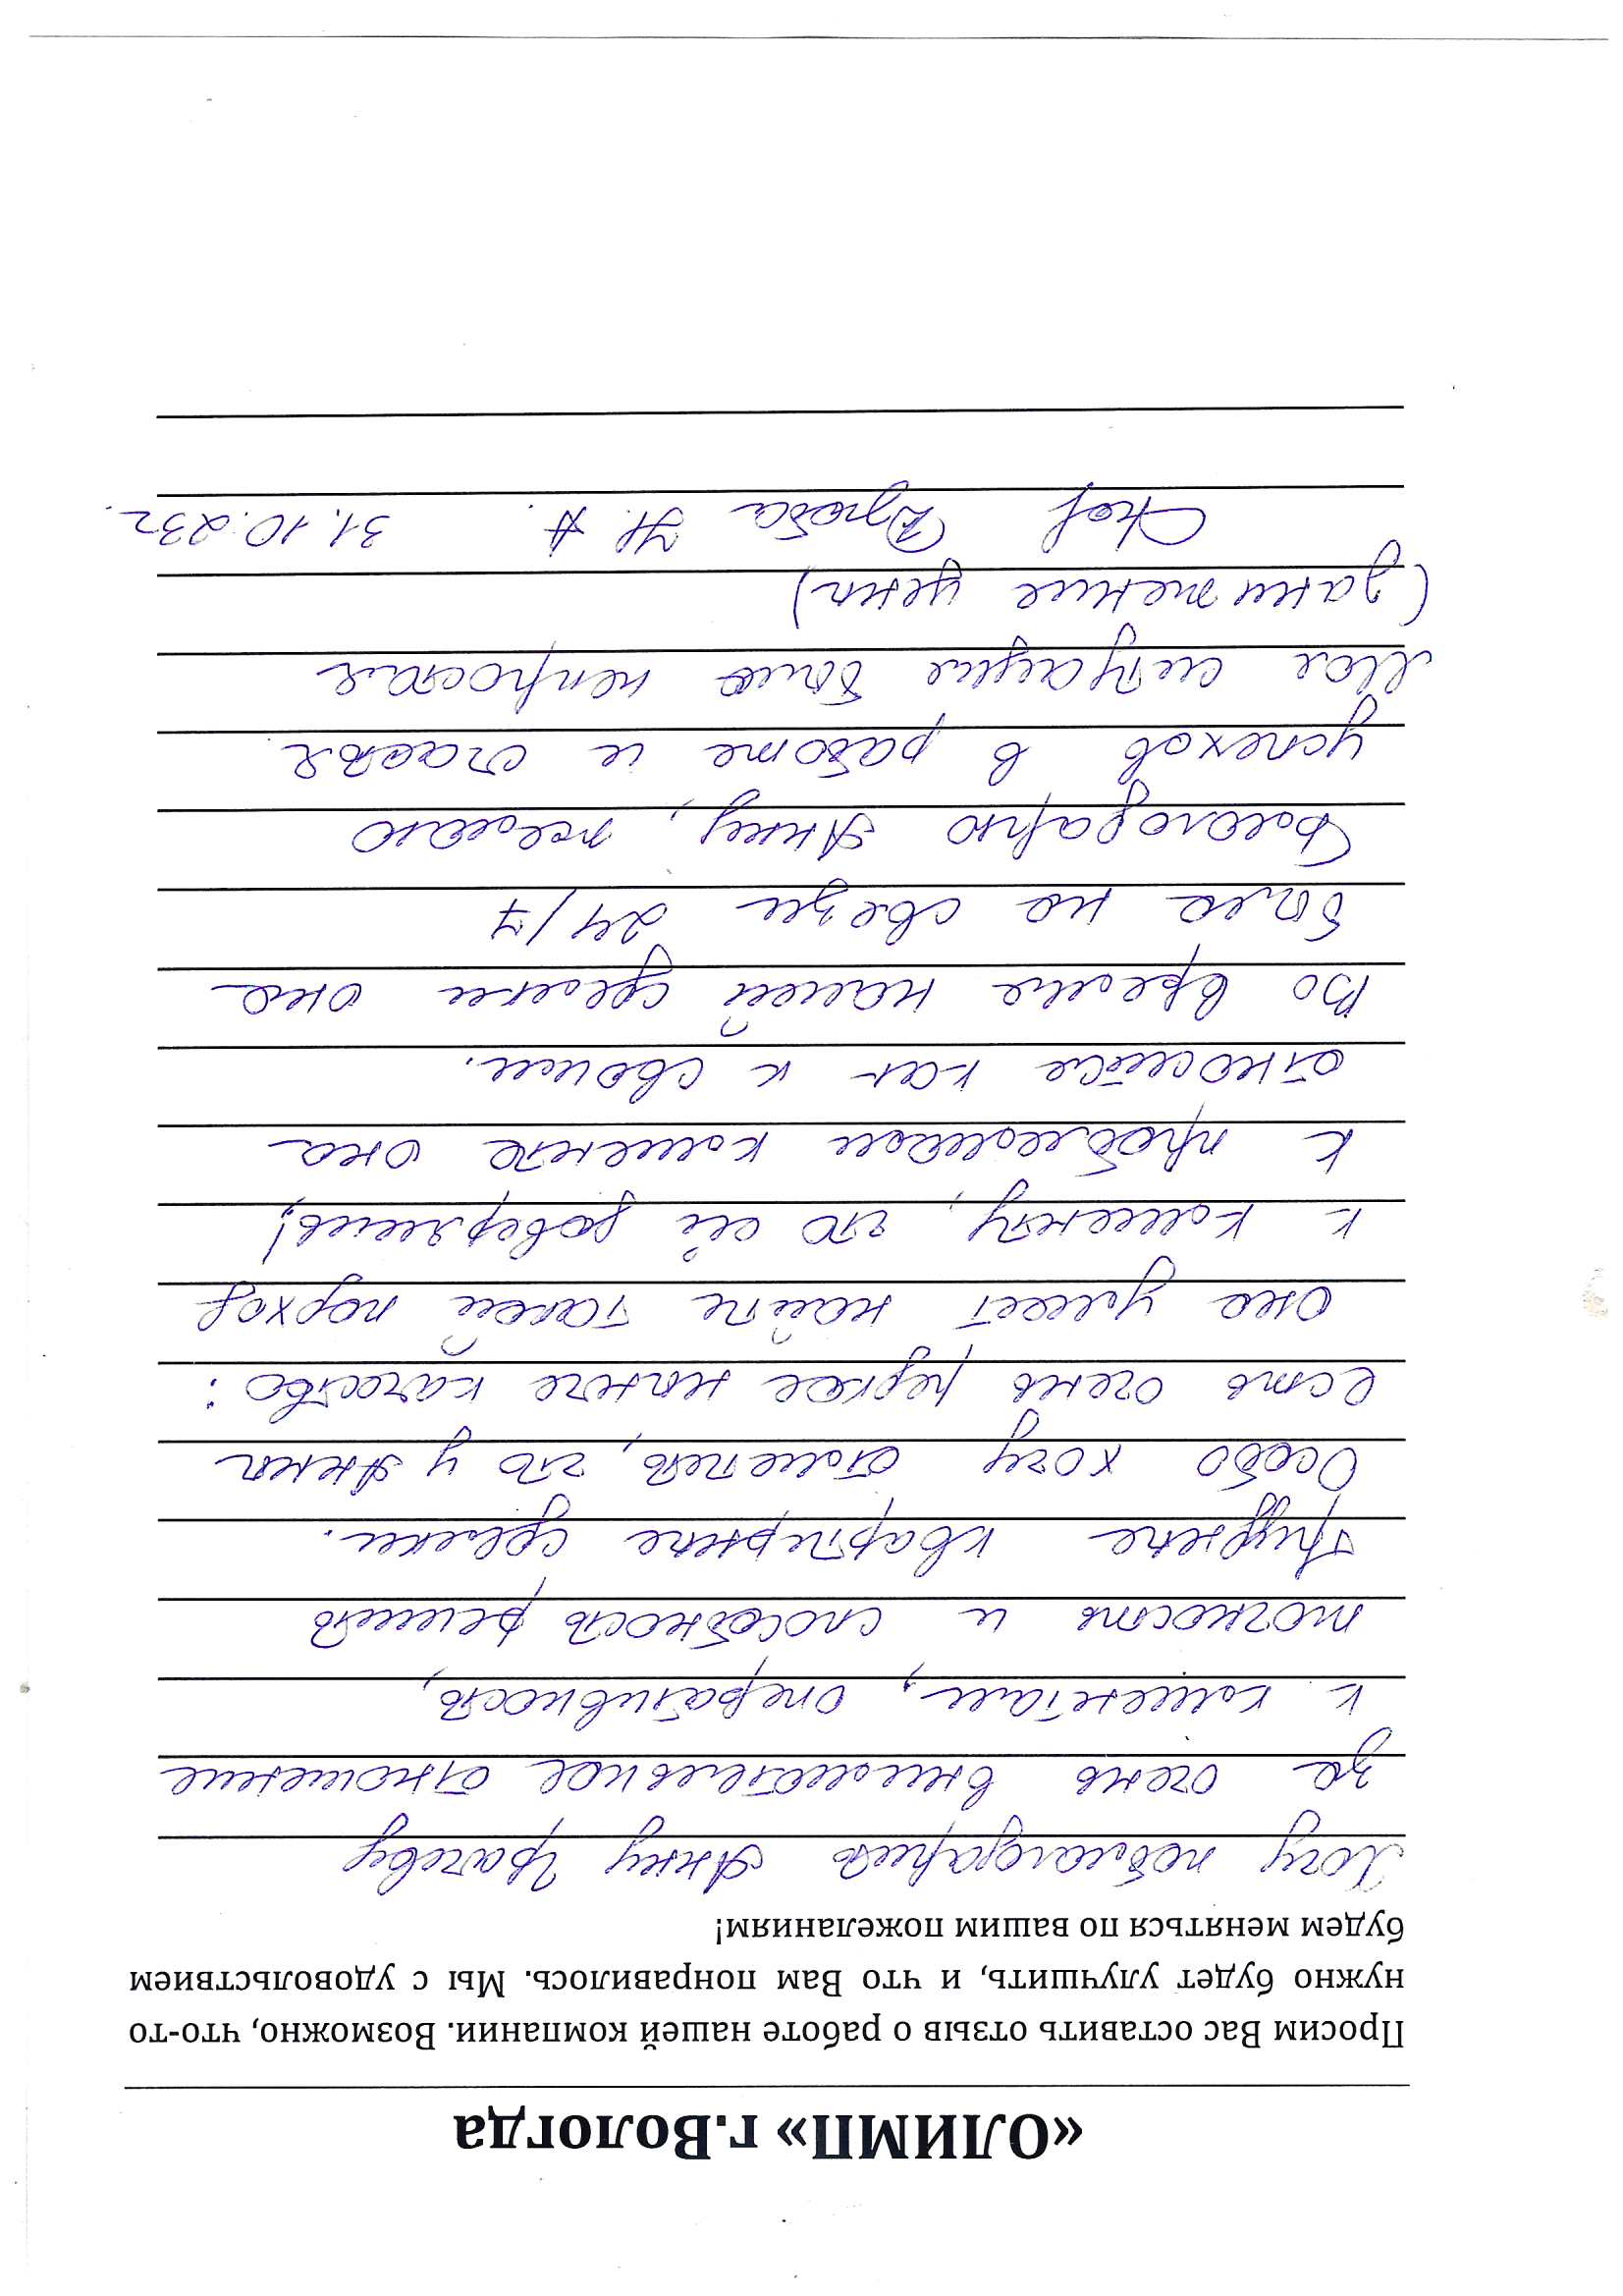 «ОЛИМП» г.Вологда
Просим Вас оставить отзыв о работе нашей компании. Возможно, что-то
нужно будет улучшить, и что Вам понравилось. Мы с удовольствием
будем меняться по вашим пожеланиям!
Хочу поблагодарить Анну Грачеву
за очень внимательное отношение
к клиентам, оперативность,
точность и способность решать
трудные квартирные сделки.
Особо хочу отметить, что у Анны
есть очень редкое ныне качество:
она умеет найти такой подход
к клиенту, что ей доверяешь!
к проблемам клиента она
относится как к своим.
Во время нашей сделки она
была на связи 24/7
Благодарю Анну, желаю
успехов в работе и счастья
Моя ситуация была непростая
(занижение цены)
Н. А. 31.10.23г.